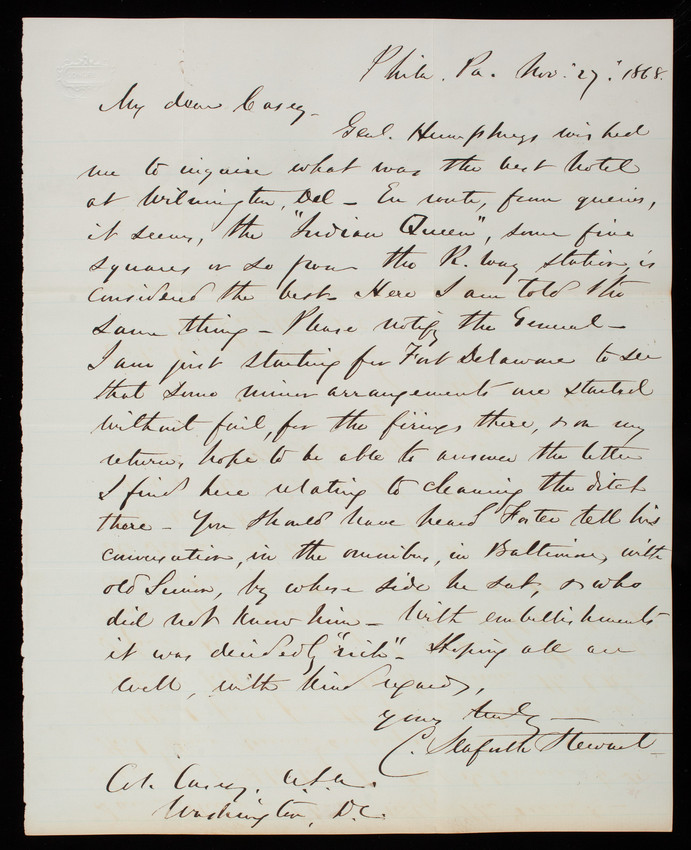 Phila. Pa. Nov. 27. 1868.
My dear Casey-
Genl. Humphreys wished
me to inquire what was the best hotel
at Wilmington, Del - En route, from queries,
it seems, the "Indian Queen", some five
squares or so from the R. Way station, is
considered the best - Here I am told the
same thing - Please notify the General -
I am just starting for Fort Delaware to see
that some minor arrangements are started
without fail, for the firings there, & on my
return, hope to be able to answer the letter
I find here relating to cleaning the ditch
there - You should have heard Foster tell his
conversation, in the omnibus, in Baltimore, with
old Simon, by whose side he sat, & who
did not know him - With embellishments
it was decidedly "rich" - Hoping all are
well, with kind regards,
yours truly -
C. Seaforth Stewart
Col. Casey, U.S.A.
Washington, D.C.